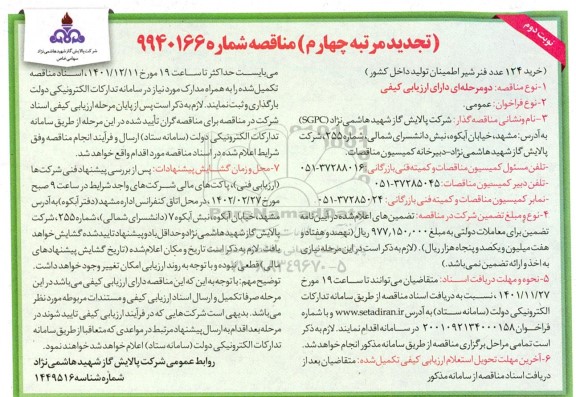 نوبت دوم
(تجدید مرتبه چهارم) مناقصه شماره ۹۹۴۰۱۶۶
شرکت پالایش گاز شهید هاشمی نژاد
سهامی خاص
(خرید ۱۲۴ عدد فنر شیر اطمینان تولید داخل کشور)
۱-نوع مناقصه: دو مرحله‌ای دارای ارزیابی کیفی
۲-نوع فراخوان: عمومی.
۳-نام و نشانی مناقصه گذار: شرکت پالایش گاز شهید هاشمی نژاد (SGPC)
به آدرس: مشهد، خیابان آبکوه، نبش دانشسرای شمالی، شماره ۲۵۵، شرکت
پالایش گاز شهید هاشمی نژاد-دبیرخانه کمیسیون مناقصات.
-تلفن مسئول کمیسیون مناقصات و کمیته فنی بازرگانی: ۳۷۲۸۸۰۱۶-۰۵۱
-تلفن دبیر کمیسیون مناقصات: ۳۷۲۸۵۰۴۵-۰۵۱
-نمابر کمیسیون مناقصات و کمیته فنی بازرگانی: ۳۷۲۸۵۰۲۴-۰۵۱
۴-نوع و مبلغ تضمین شرکت در مناقصه: تضمین های اعلام شده در آیین نامه
تضمین برای معاملات دولتی به مبلغ ۹۷۷,۱۵۰,۰۰۰ ریال (نهصد و هفتاد و
هفت میلیون و یکصد و پنجاه هزار ریال). (لازم به ذکر است در این مرحله نیازی
به اخذ و ارائه تضمین نمی باشد.)
۵-نحوه و مهلت دریافت اسناد: متقاضیان می توانند تا ساعت ۱۹ مورخ
۱۴۰۱/۱۱/۲۷ نسبت به دریافت اسناد مناقصه از طریق سامانه تدارکات
الکترونیکی دولت (سامانه ستاد) به آدرس www.setadiran.ir و با شماره
فراخوان ۲۰۰۱۰۹۲۱۳۴۰۰۰۱۵۸ در سامانه اقدام نمایند. لازم به ذکر
است تمامی مراحل برگزاری مناقصه از طریق سامانه مذکور انجام خواهد شد.
۶-آخرین مهلت تحویل استعلام ارزیابی کیفی تکمیل شده: متقاضیان بعد از
دریافت اسناد مناقصه از سامانه مذکور
می بایست حداکثر تا ساعت ۱۹ مورخ ۱۴۰۱/۱۲/۱۱، اسناد مناقصه
تکمیل شده را به همراه مدارک مورد نیاز در سامانه تدارکات الکترونیکی دولت
بارگذاری و ثبت نمایند. لازم به ذکر است پس از پایان مرحله ارزیابی کیفی اسناد
شرکت در مناقصه برای مناقصه گران تأیید شده در این مرحله از طریق سامانه
تدارکات الکترونیکی دولت (سامانه ستاد) ارسال و فرآیند انجام مناقصه وفق
شرایط اعلام شده در اسناد مناقصه مورد اقدام واقع خواهد شد.
۷-محل و زمان گشایش پیشنهادات: پس از بررسی پیشنهاد فنی شرکت ها
(ارزیابی فنی)، پاکت های مالی شرکت های واجد شرایط در ساعت ۹ صبح
مورخ ۱۴۰۲/۰۲/۲۷ در محل اتاق کنفرانس اداره مشهد (دفتر آبکوه) به آدرس
مشهد، خیابان آبکوه، نبش آبکوه ۷ (دانشسرای شمالی)، شماره ۲۵۵، شرکت
پالایش گاز شهید هاشمی نژاد و حداقل با دو پیشنهاد تایید شده گشایش خواهد
یافت. لازم به ذکر است تاریخ و مکان اعلام شده (تاریخ گشایش پیشنهادهای
مالی) قطعی نبوده و با توجه به روند ارزیابی امکان تغییر وجود خواهد داشت.
توضیح مهم: با توجه به این که این مناقصه دارای ارزیابی کیفی می باشد در این
مرحله صرفا تکمیل و ارسال اسناد ارزیابی کیفی و مستندات مربوطه مورد نظر
می باشد. بدیهی است شرکت هایی که در فرآیند ارزیابی کیفی تایید شوند در
مرحله بعد اقدام به ارسال پیشنهاد مرتبط در مواعدی که متعاقبا از طریق سامانه
تدارکات الکترونیکی دولت (سامانه ستاد) اعلام خواهد شد خواهند نمود.
روابط عمومی شرکت پالایش گاز شهید هاشمی نژاد
شماره شناسه ۱۴۴۹۵۱۶